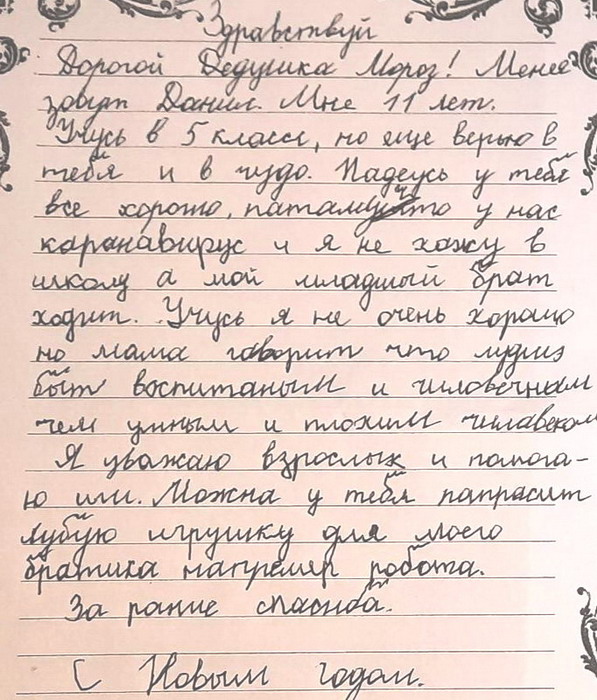 Здравствуй
Дорогой Дедушка Мороз! Менея
зовут Данил. Мне 11 лет.
Учусь в 5 классе, но еще верю в
тебя и в чудо. Надеусь у тебя
все хорошо, патамучто у нас
каранавирус и я не хажу в
школу а мой младшый брат
ходит. Учусь я не очень хорашо
но мама говорит что лудшэ
быт воспитаным и чиловечным
чем умным и плохим чилавеком
Я уважаю взрослых и помога-
ю или. Можна у тебя папрасит
лубую игрушку для моего
братика напремер робота.
За рание спасиба.
С Новым годом.